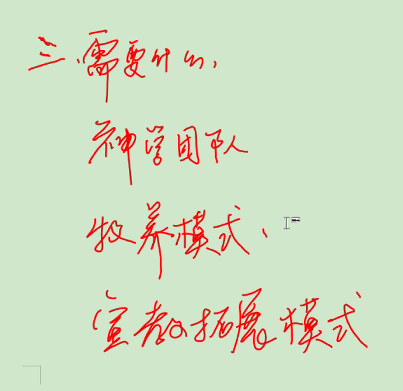 三、需要什么，
神学团队
牧养模式、
宣教拓展模式